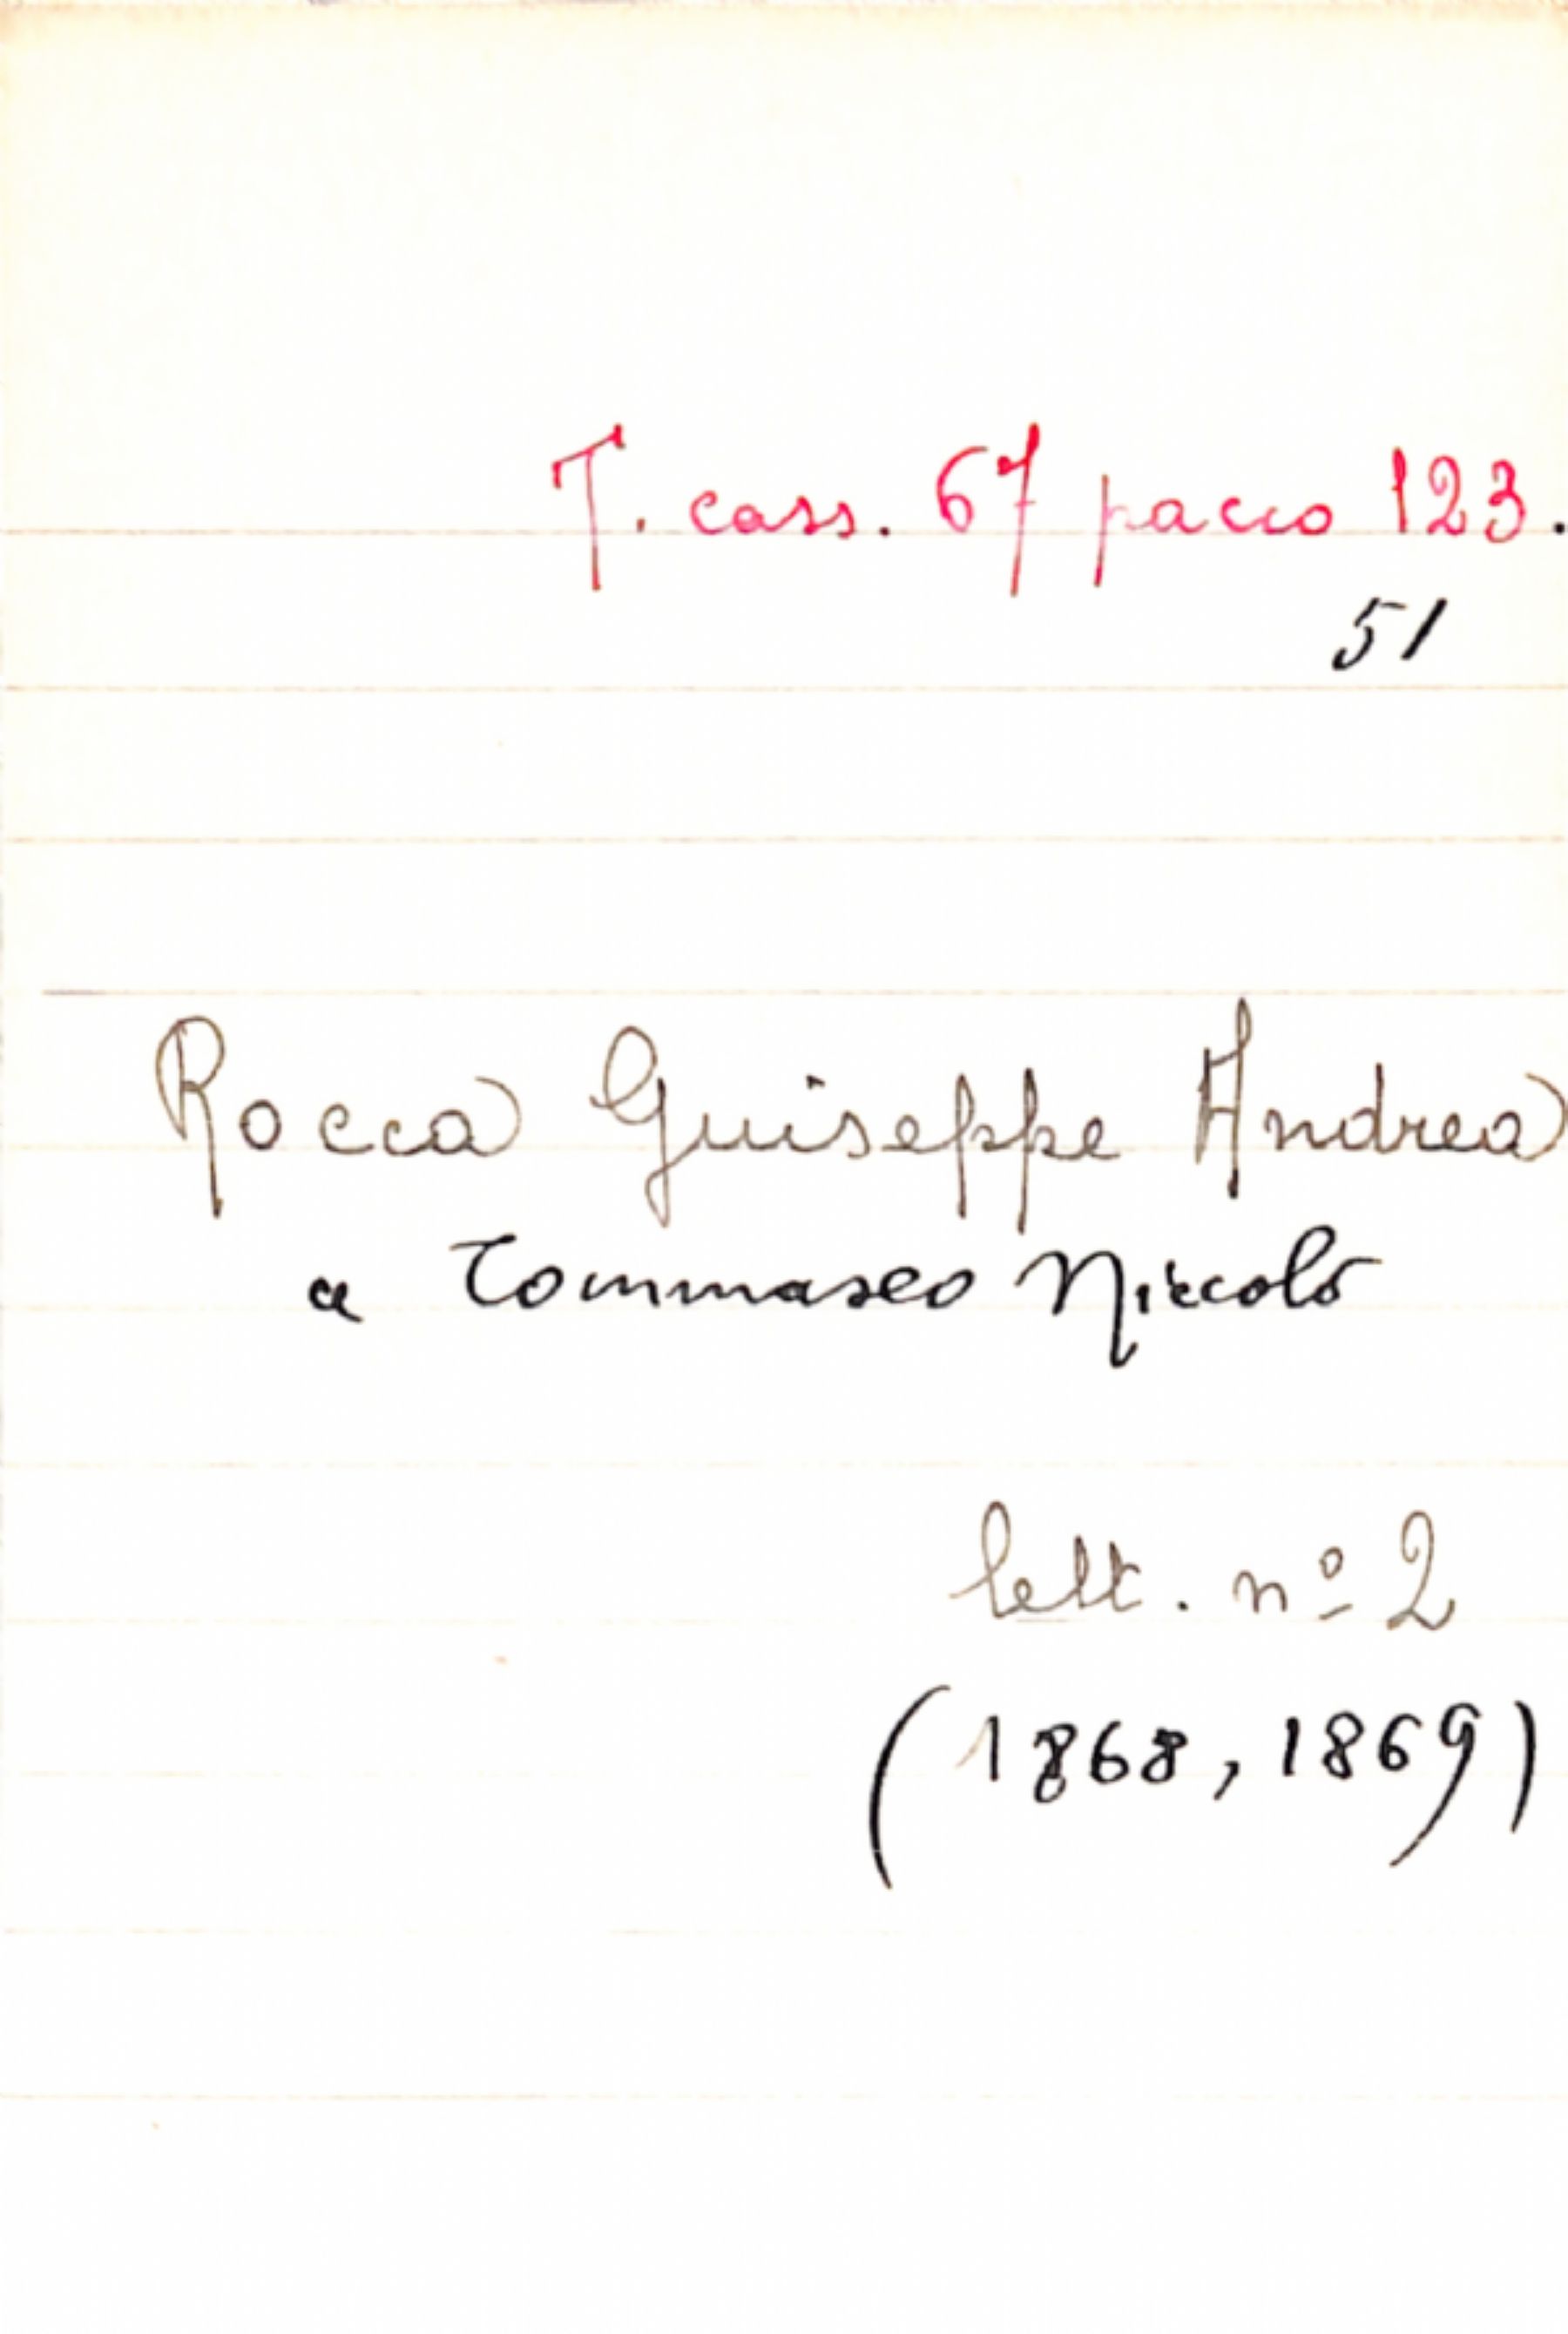 T. cass. 67 pacco 123.
51
Rocca Giuseppe Andrea
a Tommaseo Niccolò
lett. nº 2
(1868, 1869)